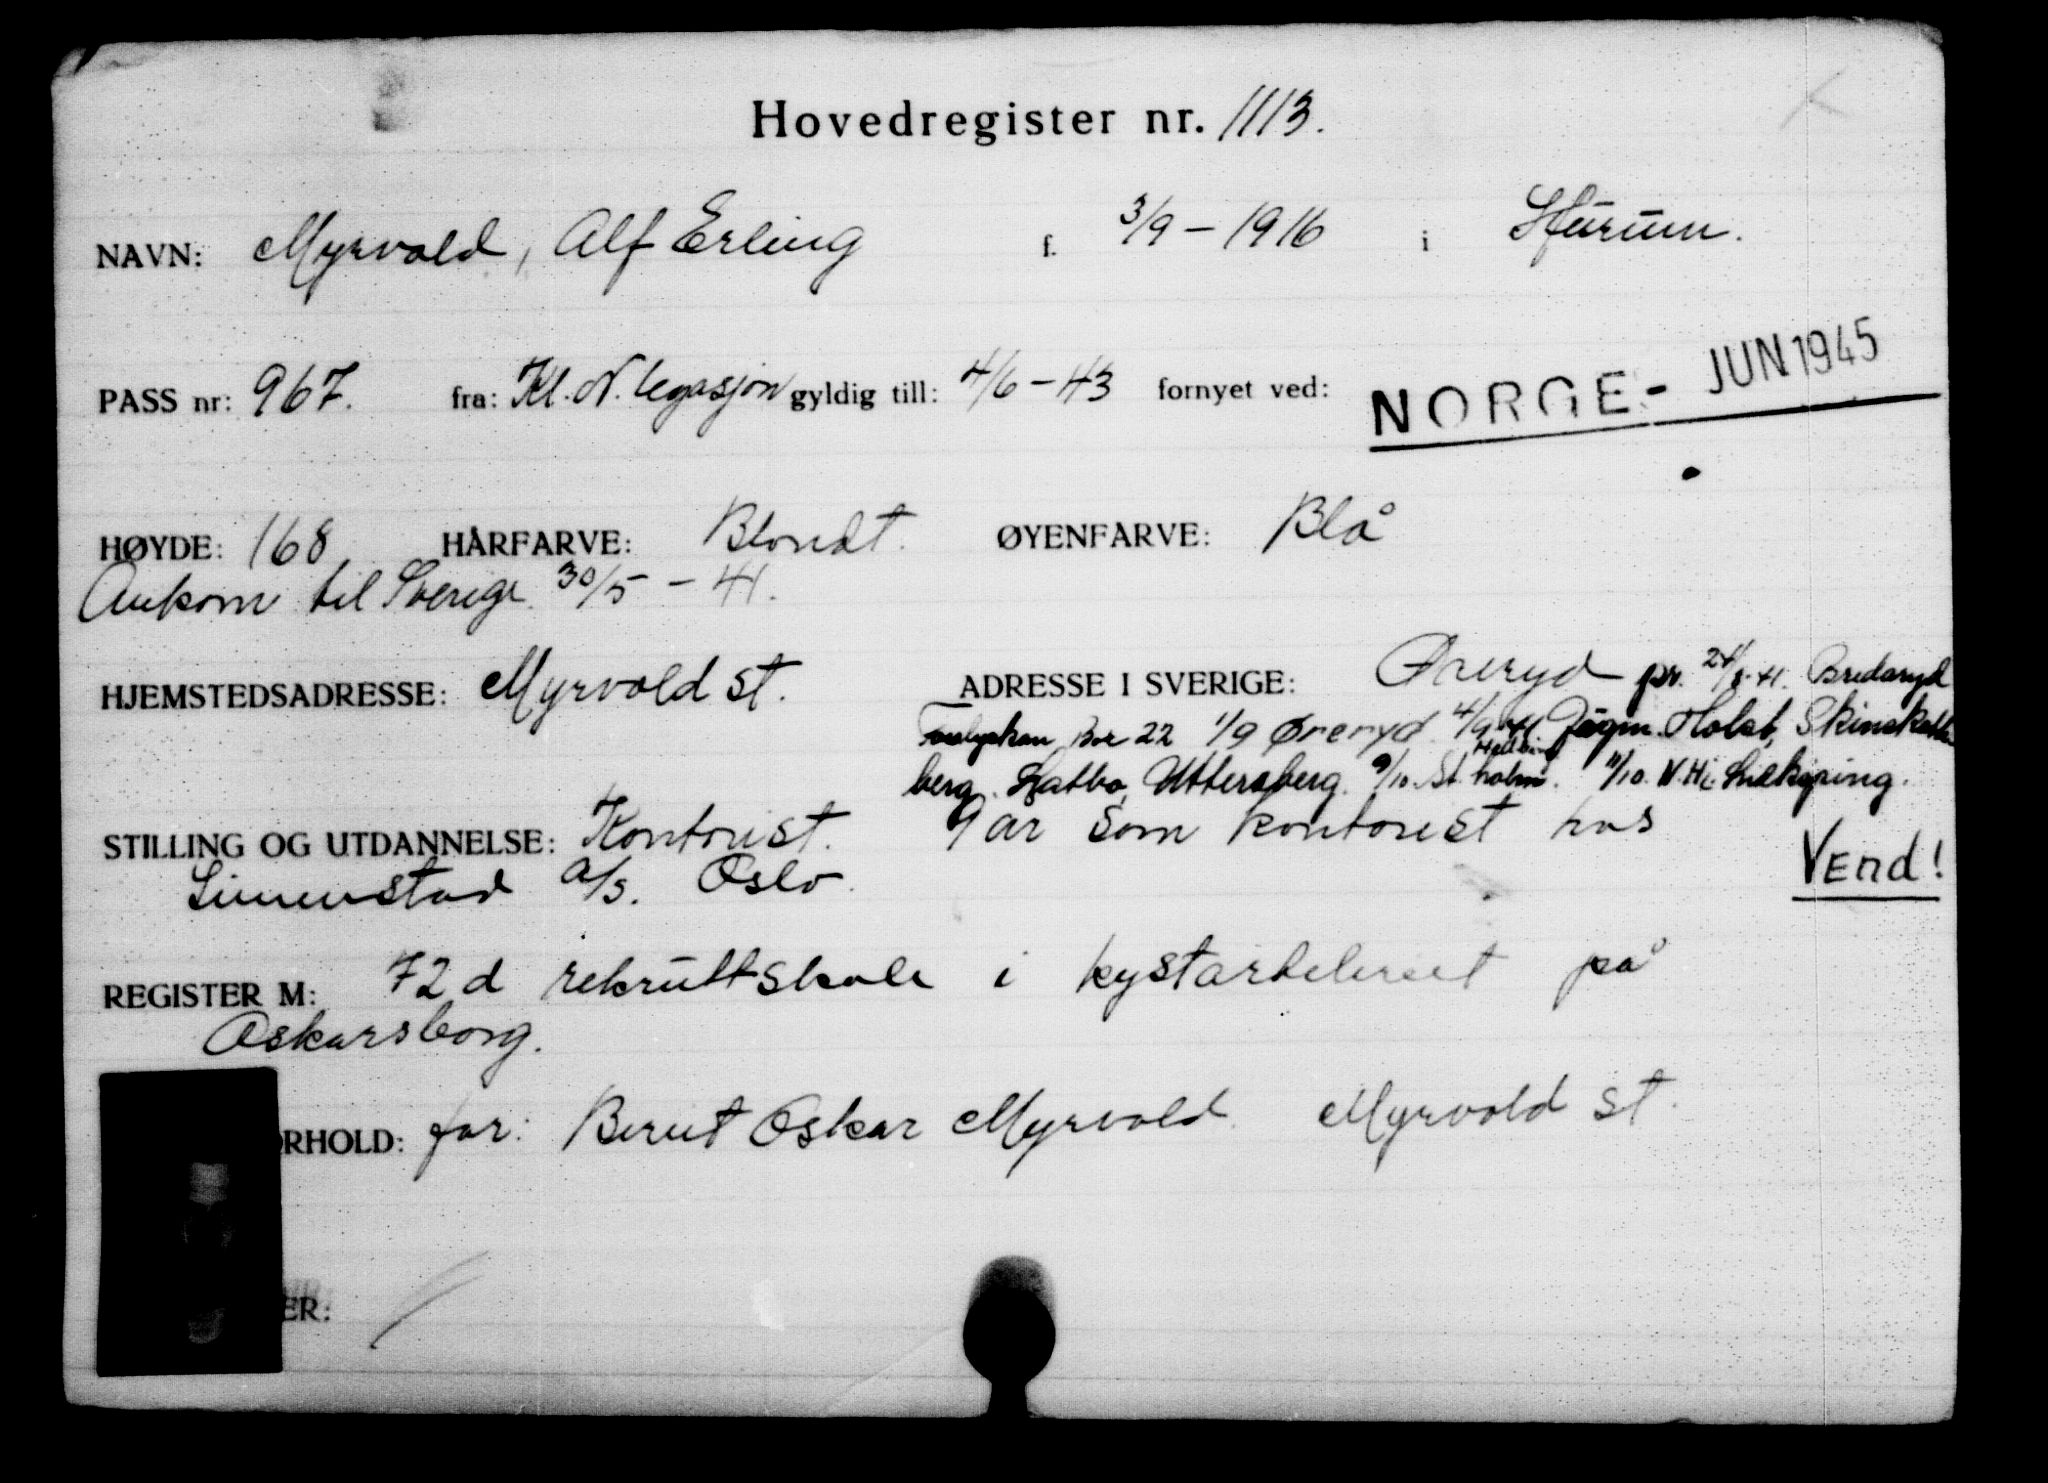 Hovedregister nr. 1113.
NAVN: Myrvold, Alf Erling f. 3/9 - 1916 i Hurum.
PASS nr: 967. fra: Kl. N. legasjon gyldig till: 4/6 - 43 fornyet ved: NORGE - JUN 1945
HØYDE: 168 HÅRFARVE: Blondt. ØYENFARVE: Blå
Ankom til Sverige 30/5 - 41.
HJEMSTEDSADRESSE: Myrvold st. ADRESSE I SVERIGE: Øreryd pr. 41. Bredaryd
Box 22 1/9 Øreryd 4/9 41. Jägm. Holst, Skinskatte
berg. Uttersberg. 9/10. St. holm. 11/10. V. Hi Lidköping.
STILLING OG UTDANNELSE: Kontorist. 9 år som kontorist hos
a/s. Oslo.
Vend!
REGISTER M: 72 d rekruttskole i kystartileriet på
Oskarsborg.
ORHOLD: far: Bernt Oskar Myrvold Myrvold st.
ER: